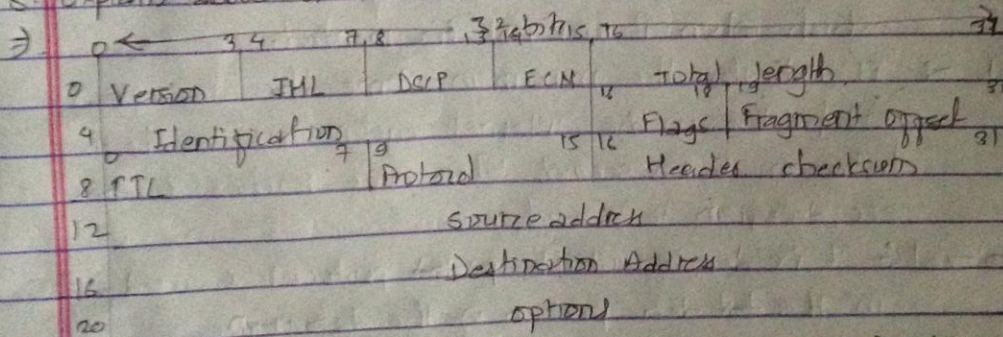 ⇒ 0 ← 3, 4 7, 8 32 bits 15, 16 31
0 Version IHL DSCP ECN Total length
16 18 19 31
4 Identification Flags Fragment offset
0 7 8 15 16 31
8 TTL Protocol Header checksum
12 source address
16 Destination Address
20 options